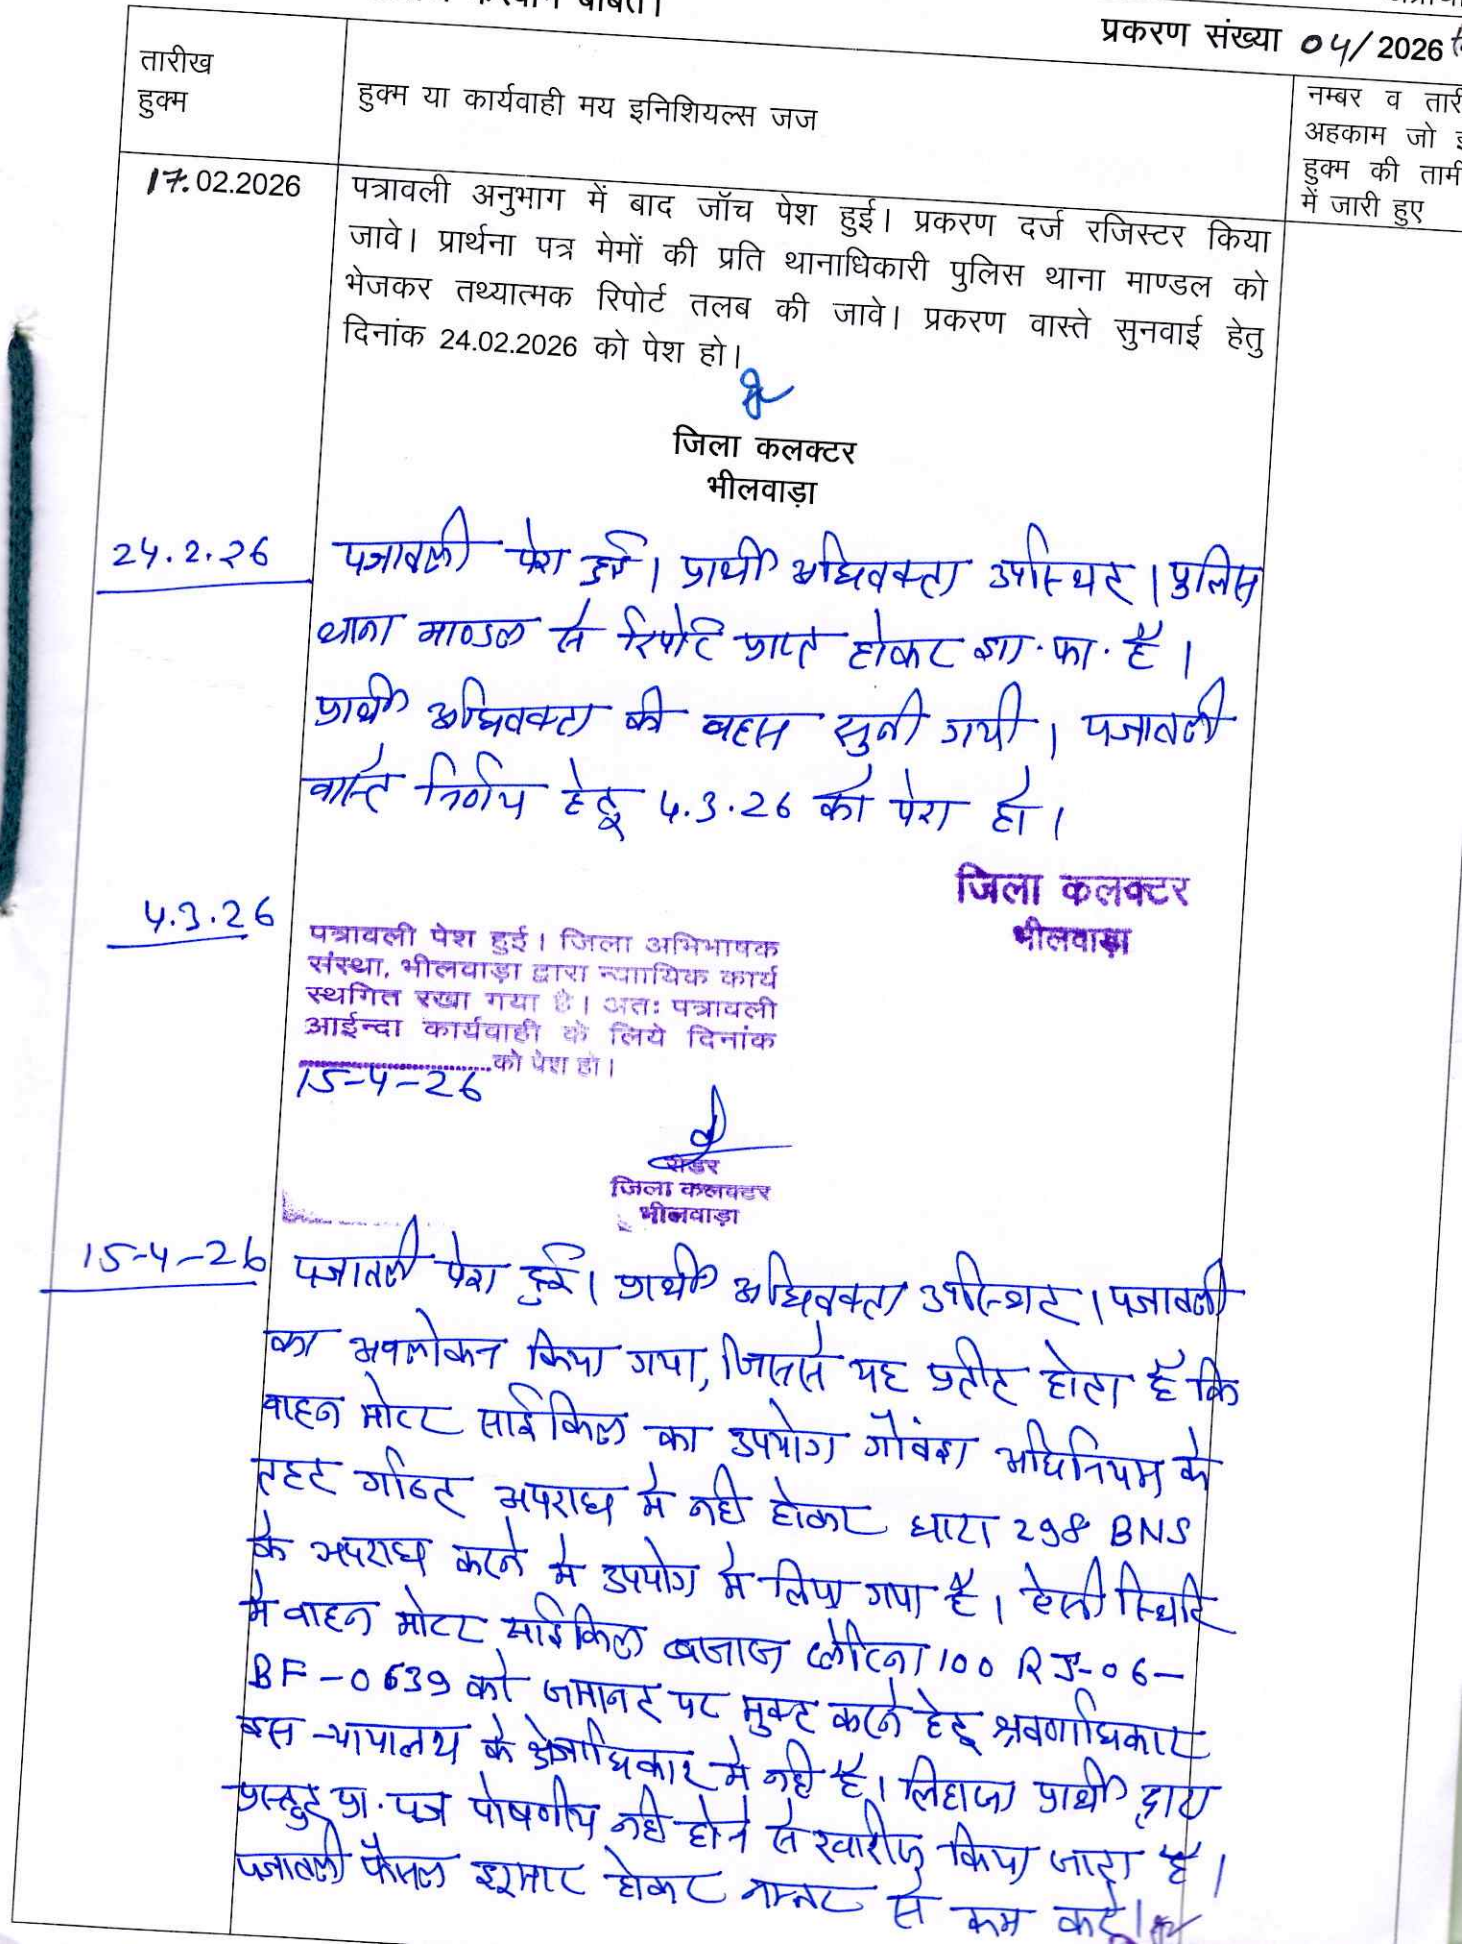 प्रकरण संख्या 04/2026
तारीख
हुक्म
हुक्म या कार्यवाही मय इनिशियल्स जज
नम्बर व
अहकाम जो
हुक्म की
में जारी हुए
17.02.2026
पत्रावली अनुभाग में बाद जॉच पेश हुई। प्रकरण दर्ज रजिस्टर किया
जावे। प्रार्थना पत्र मेमों की प्रति थानाधिकारी पुलिस थाना माण्डल को
भेजकर तथ्यात्मक रिपोर्ट तलब की जावे। प्रकरण वास्ते सुनवाई हेतु
दिनांक 24.02.2026 को पेश हो।
जिला कलक्टर
भीलवाड़ा
24.2.26
पत्रावली पेश हुई। प्रार्थी अधिवक्ता उपस्थित। पुलिस
थाना माण्डल से रिपोर्ट प्राप्त होकर शा.फा. है।
प्रार्थी अधिवक्ता की बहस सुनी गयी। पत्रावली
वास्ते निर्णय हेतु 4.3.26 को पेश हो।
जिला कलक्टर
भीलवाड़ा
4.3.26
पत्रावली पेश हुई। जिला अभिभाषक
संस्था, भीलवाड़ा द्वारा न्यायिक कार्य
स्थगित रखा गया है। अतः पत्रावली
आईन्दा कार्यवाही के लिये दिनांक
..............................को पेश हो।
15-4-26
रीडर
जिला कलक्टर
भीलवाड़ा
15-4-26
पत्रावली पेश हुई। प्रार्थी अधिवक्ता उपस्थित। पत्रावली
का अवलोकन किया गया, जिससे यह प्रतीत होता है कि
वाहन मोटर साईकिल का उपयोग गौवंश अधिनियम के
तहत गठित अपराध में नही होकर धारा 298 BNS
के अपराध करने में उपयोग में लिया गया है। ऐसी स्थिति
में वाहन मोटर साईकिल बजाज प्लेटिना 100 RJ-06-
BF-0639 को जमानत पर मुक्त करने हेतु श्रवणाधिकार
इस न्यायालय के क्षेत्राधिकार में नही है। लिहाजा प्रार्थी द्वारा
प्रस्तुत प्रा.पत्र पोषणीय नही होने से खारीज किया जाता है।
पत्रावली फैसल शुमार होकर नम्बर से कम करे।